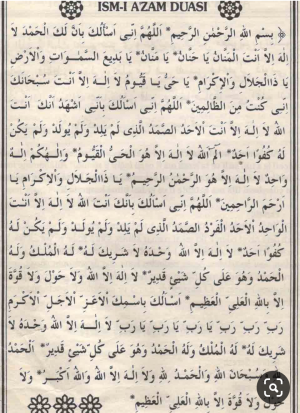 İSM-İ A'ZAM DUASI
﴿ بِسْمِ اللهِ الرَّحْمٰنِ الرَّحِيمِ * اَللّٰهُمَّ اِنِّى اَسْأَلُكَ بِاَنَّ لَكَ الْحَمْدَ لَا
اِلٰهَ اِلَّا اَنْتَ الْمَنَّانُ يَا حَنَّانُ * يَا مَنَّانُ * يَا بَدِيعَ السَّمٰوَاتِ وَالْاَرْضِ
يَا ذَاالْجَلَالِ وَالْاِكْرَامِ * يَا حَىُّ يَا قَيُّومُ لَا اِلٰهَ اِلَّا اَنْتَ سُبْحَانَكَ
اِنِّى كُنْتُ مِنَ الظَّالِمِينَ * اَللّٰهُمَّ اِنِّى اَسْأَلُكَ بِاَنِّى اَشْهَدُ اَنَّكَ اَنْتَ
اللهُ لَا اِلٰهَ اِلَّا اَنْتَ الْاَحَدُ الصَّمَدُ الَّذِى لَمْ يَلِدْ وَلَمْ يُولَدْ وَلَمْ يَكُنْ
لَهُ كُفُوًا اَحَدٌ * الٓمٓ اَللهُ لَا اِلٰهَ اِلَّا هُوَ الْحَىُّ الْقَيُّومُ * وَاِلٰهُكُمْ اِلٰهٌ
وَاحِدٌ لَا اِلٰهَ اِلَّا هُوَ الرَّحْمٰنُ الرَّحِيمُ * يَا ذَاالْجَلَالِ وَالْاِكْرَامِ يَا
اَرْحَمَ الرَّاحِمِينَ * اَللّٰهُمَّ اِنِّى اَسْأَلُكَ بِاَنَّكَ اَنْتَ اللهُ لَا اِلٰهَ اِلَّا اَنْتَ
الْوَاحِدُ الْاَحَدُ الْفَرْدُ الصَّمَدُ الَّذِى لَمْ يَلِدْ وَلَمْ يُولَدْ وَلَمْ يَكُنْ لَهُ
كُفُوًا اَحَدٌ * لَا اِلٰهَ اِلَّا اللهُ وَحْدَهُ لَا شَرِيكَ لَهُ * لَهُ الْمُلْكُ وَلَهُ
الْحَمْدُ وَهُوَ عَلٰى كُلِّ شَيْئٍ قَدِيرٌ * لَا اِلٰهَ اِلَّا اللهُ وَلَا حَوْلَ وَلَا قُوَّةَ
اِلَّا بِاللهِ الْعَلِىِّ الْعَظِيمِ * اَسْأَلُكَ بِاسْمِكَ الْاَعَزِّ الْاَجَلِّ الْاَكْرَمِ
رَبِّ رَبِّ رَبِّ يَا رَبِّ يَا رَبِّ يَا رَبِّ * لَا اِلٰهَ اِلَّا اللهُ وَحْدَهُ لَا
شَرِيكَ لَهُ * لَهُ الْمُلْكُ وَلَهُ الْحَمْدُ وَهُوَ عَلٰى كُلِّ شَيْئٍ قَدِيرٌ * اَلْحَمْدُ
سُبْحَانَ اللهِ وَالْحَمْدُ لِلّٰهِ وَلَا اِلٰهَ اِلَّا اللهُ وَاللهُ اَكْبَرُ * وَلَا
حَوْلَ وَلَا قُوَّةَ اِلَّا بِاللهِ الْعَلِىِّ الْعَظِيمِ *